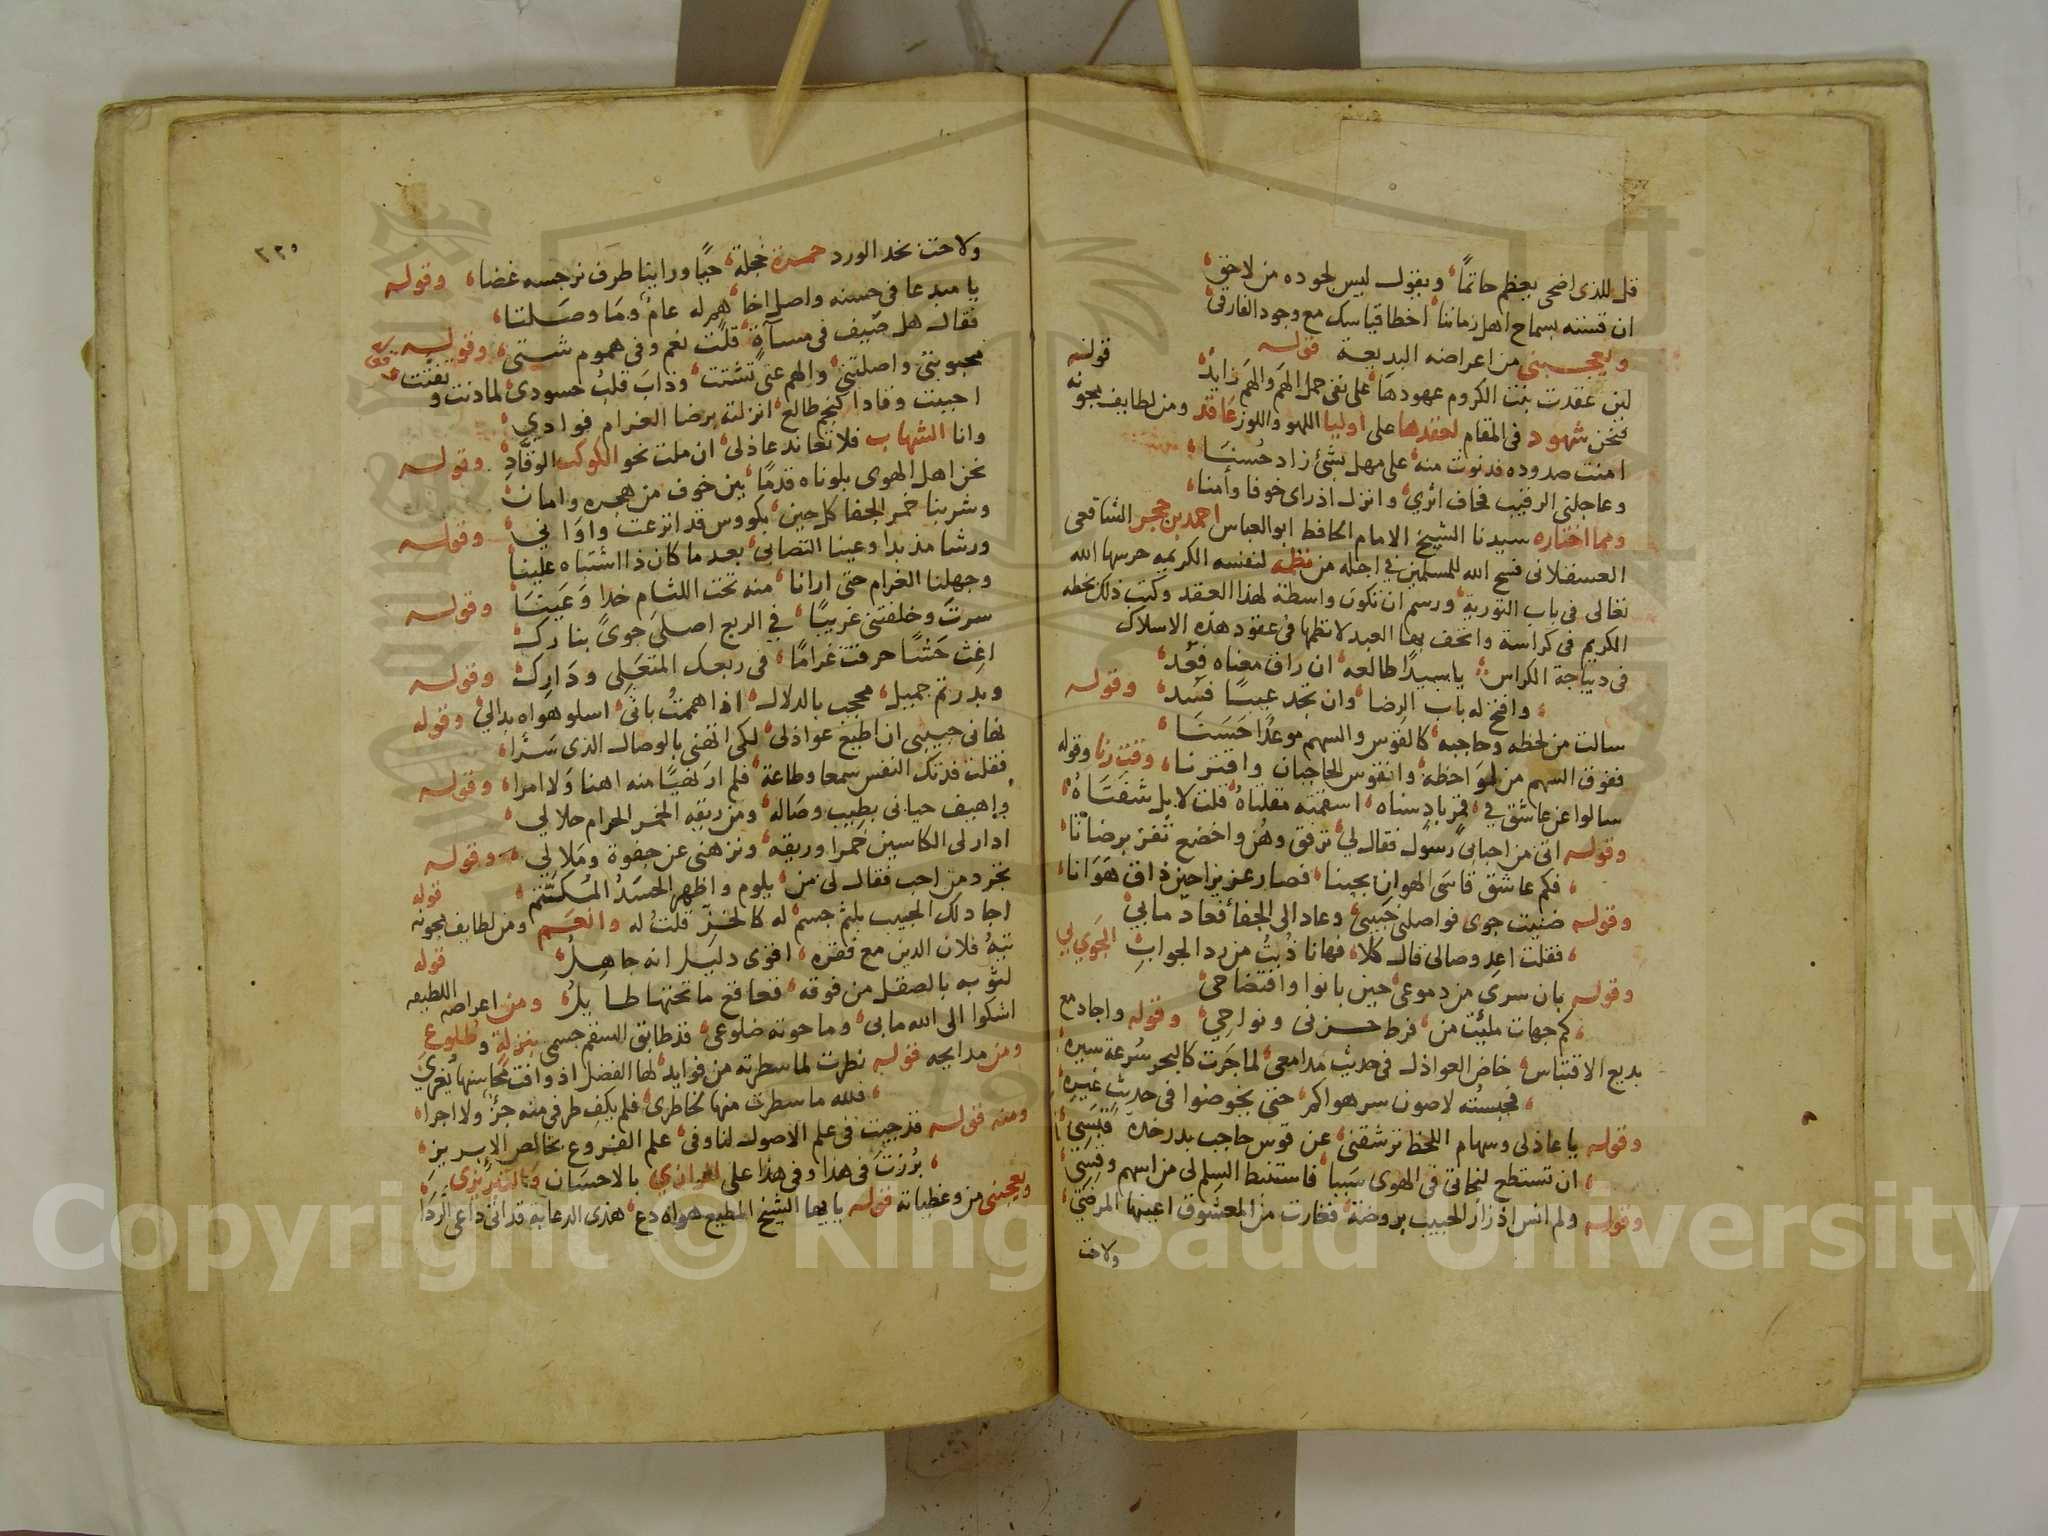 قل للذي اضحى يعظم حاتمًا ويقول ليس لجوده من لاحق
ان قسته بسماح اهل زماننا اخطا قياسك مع وجود الفارق
ويعجبني من اعراضه البديعة قوله
لين عقدت بنت الكروم عهودها على نفي حمل الهم والهم زايد
فنحن شهود في المقام لعقدها على اوليا اللهو واللوز عاقد ومن لطايف مجونه قوله
امنت صدوده فدنوت منه على مهل بشئ زاد حسنا
وعاجلني الرقيب فخاف اثري وانزل اذراى خوفا وأمنا
ومما اختاره سيدنا الشيخ الامام الحافظ ابو العباس احمد بن حجر الشافعي
العسقلاني فسح الله للمسلمين في اجله من نظمه لنفسه الكريمه حرسها الله
تعالى في باب التورية ورسم ان تكون واسطة لهذا العقد وكتب ذلك بخطه
الكريم في كراسة واتحف بها العبد لانظمها في عقود هذه الاسلاك
في ديباجة الكراس يا سيدًا طالعه ان راق معناه فعد
وافتح له باب الرضا وان تجد عيبًا فسد وقوله
سالت من لحظه وحاجبه كالقوس والسهم موعدًا حسنا
ففوق السهم من لواحظه وانقوس الحاجبان واقترنا وقوله
سالوا عن عاشق في قمر باد سناه اسقمته مقلتاه قلت لا بل شفتاه
وقوله اتى من احبائي رسول فقال لي ترفق وهن واخضع تفز برضانا
فكم عاشق قاسى الهوان بحبنا فصار عزيزا حين ذاق هوانا
وقوله ضنيت جوى فواصلني حبيبي وعاد الى الجفا فعاد ما بي
فقلت اعد وصالي قال كلا فهانا ذبت من رد الجواب
وقوله بان سري من دموعي حين بانوا وافتضاحي
كم جهات ملئت من فرط حزني ونواحي وقوله واجاد مع
بديع الاقتباس خاض العواذل في حديث مدامعي لما جرت كالبحر سرعة سيره
فحبسته لاصون سر هواكم حتى يخوضوا في حديث غيره
وقوله يا عاذلي وسهام اللحظ ترشقني عن قوس حاجب بدر خده قبسي
ان تستطع لنجاتي في الهوى سببا فاستنبط السلم لي من اسهم وقسي
وقوله ولم انس اذ زار الحبيب بروضة فغارت من المعشوق اعينها المرضى
ولاحت
٢٢٥
ولاحت بخد الورد حمرة خجلة حبًا ورابنا طرف نرجسه غضا وقوله
يا مبدعا في حسنه واصل اخا هم له عام وما وصلتا
فقال هل ضيف في مساءة قلت نعم وفي هموم شتى وقوله
محبوبتي واصلتني والهم عني تشتت وذاب قلب حسودي لما دنت وتفتت
احببت وقادا كنجم طالع انزلته برضا الغرام فوادي
وانا الشهاب فلا تعاند عاذلي ان ملت نحو الكوكب الوقاد وقوله
نحن اهل الهوى بلوناه قدمًا بين خوف من هجره وامان
وشربنا خمر الجفا كل حين بكووس قد اترعت واواني وقوله
ورشا مذ بدا وعينا التصابي بعد ما كان ذا اشتباه علينا
وجهلنا الغرام حتى ارانا منه تحت اللثام خدا وعينا وقوله
سرت وخلفتني غريبًا في الربع اصلى جوى بنارك
اغث حشًا حرقت غرامًا في ربعك المعتلي ودارك وقوله
وبدر تم جميل محجب بالدلال اذا هممت باني اسلو هواه بدالي وقوله
نهاني حبيبي ان اطيع عواذلي لكي اتهني بالوصال الذي سرا
فقلت فدتك النفس سمعا وطاعة فلم ار نهيًا منه اهنا ولا امرا وقوله
واهيف حياني بطيب وصاله ومن ريقه الخمر الحرام حلالي
ادار لي الكاسين خمرا وريقه ونزهني عن جفوة وملالي وقوله
تجرد من احب فقال لي من يلوم واظهر الحسد المكتم
اجادلك الحبيب بلثم جسم له كالخز قلت له وانعم ومن لطايف مجونه قوله
تيه فلان الدين مع فقره اقوى دليل انه جاهل
لثوبه بالصقل من فوقه قعاقع ما تحتها طايل ومن اعراضه اللطيفه قوله
اشكوا الى الله ما بي وما حوته ضلوعي قد طابق السقم جسمي بنزلة وطلوع
ومن مدايحه قوله نظرت لما سطرته من فوايد لها الفضل اذ وافت محاسنها تغري
فلله ما سطرت منها لخاطري فلم يكف طرفي منه جزء ولا اجرا
ومنه قوله قد جيت في علم الاصول لنا وفي علم الفروع بخالص الابريز
برزت في هذا وفي هذا على الرازي بالاحسان والتبريزي
ويعجبني من وعظياته قوله يا ايها الشيخ المطيع هواه دع هذي الدعابة قد اتى داعي الردا